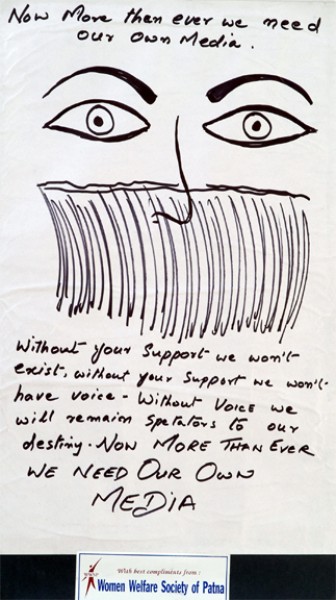 Now More then ever we need
our own Media.
Without your Support we won't
exist, without your Support we won't
have voice - Without VOICE we
will remain Spetators to our
destiny. NOW MORE THAN EVER
WE NEED OUR OWN
MEDIA
With best compliments from :
Women Welfare Society of Patna